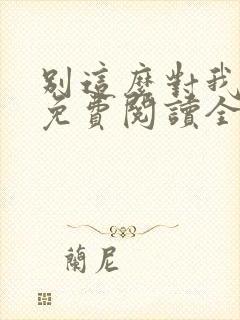 別這麼對我
免費閱讀全
蘭尼